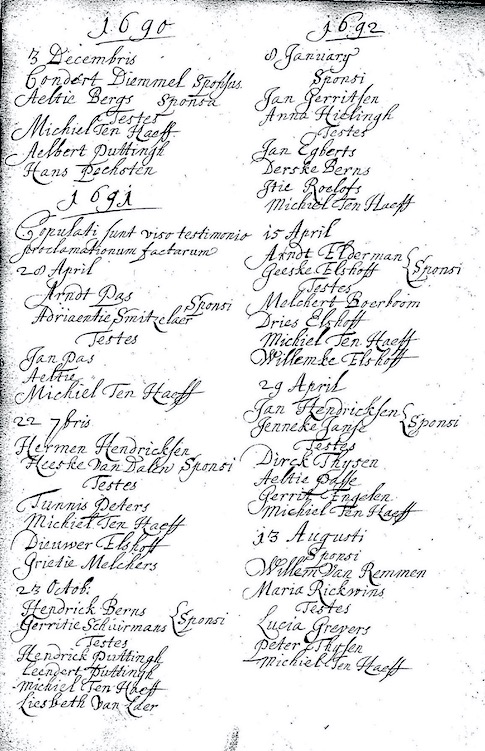 1690
3 Decembris
Condert Diemmel Sponsus
Aeltie Bergs Sponsa
Testes
Michiel Ten Haeff
Aelbert Puttingh
Hans Pochsten
1691
Copulati sunt viso testimonio
proclamationum factarum
28 April
Arndt Pas
Adriaentie Smitzelaer Sponsi
Testes
Jan Pas
Aeltie
Michiel Ten Haeff
22 7bris
Hermen Hendricksen
Heeske Van Dalen Sponsi
Testes
Tunnis Peters
Michiel Ten Haeff
Dieuwer Elshoff
Grietie Melchers
23 Octob:
Hendrick Berns
Gerritie Schuirmans Sponsi
Testes
Hendrick Puttingh
Leendert Puttingh
Michiel Ten Haeff
Liesbeth Van Laer
1692
8 January
Sponsi
Jan Gerritsen
Anna Hielingh
Testes
Jan Egberts
Derske Berns
Stie Roelofs
Michiel Ten Haeff
15 April
Arndt Elderman
Geeske Elshoff Sponsi
Testes
Melchert Boerboom
Dries Elshoff
Michiel Ten Haeff
Willemke Elshoff
29 April
Jan Hendricksen
Jenneke Janse Sponsi
Testes
Dirck Thysen
Aeltie Passe
Gerrit Engelen
Michiel Ten Haeff
13 Augusti
Sponsi
Willem Van Remmen
Maria Rickwins
Testes
Lucia Grevers
Peter Thysen
Michiel Ten Haeff